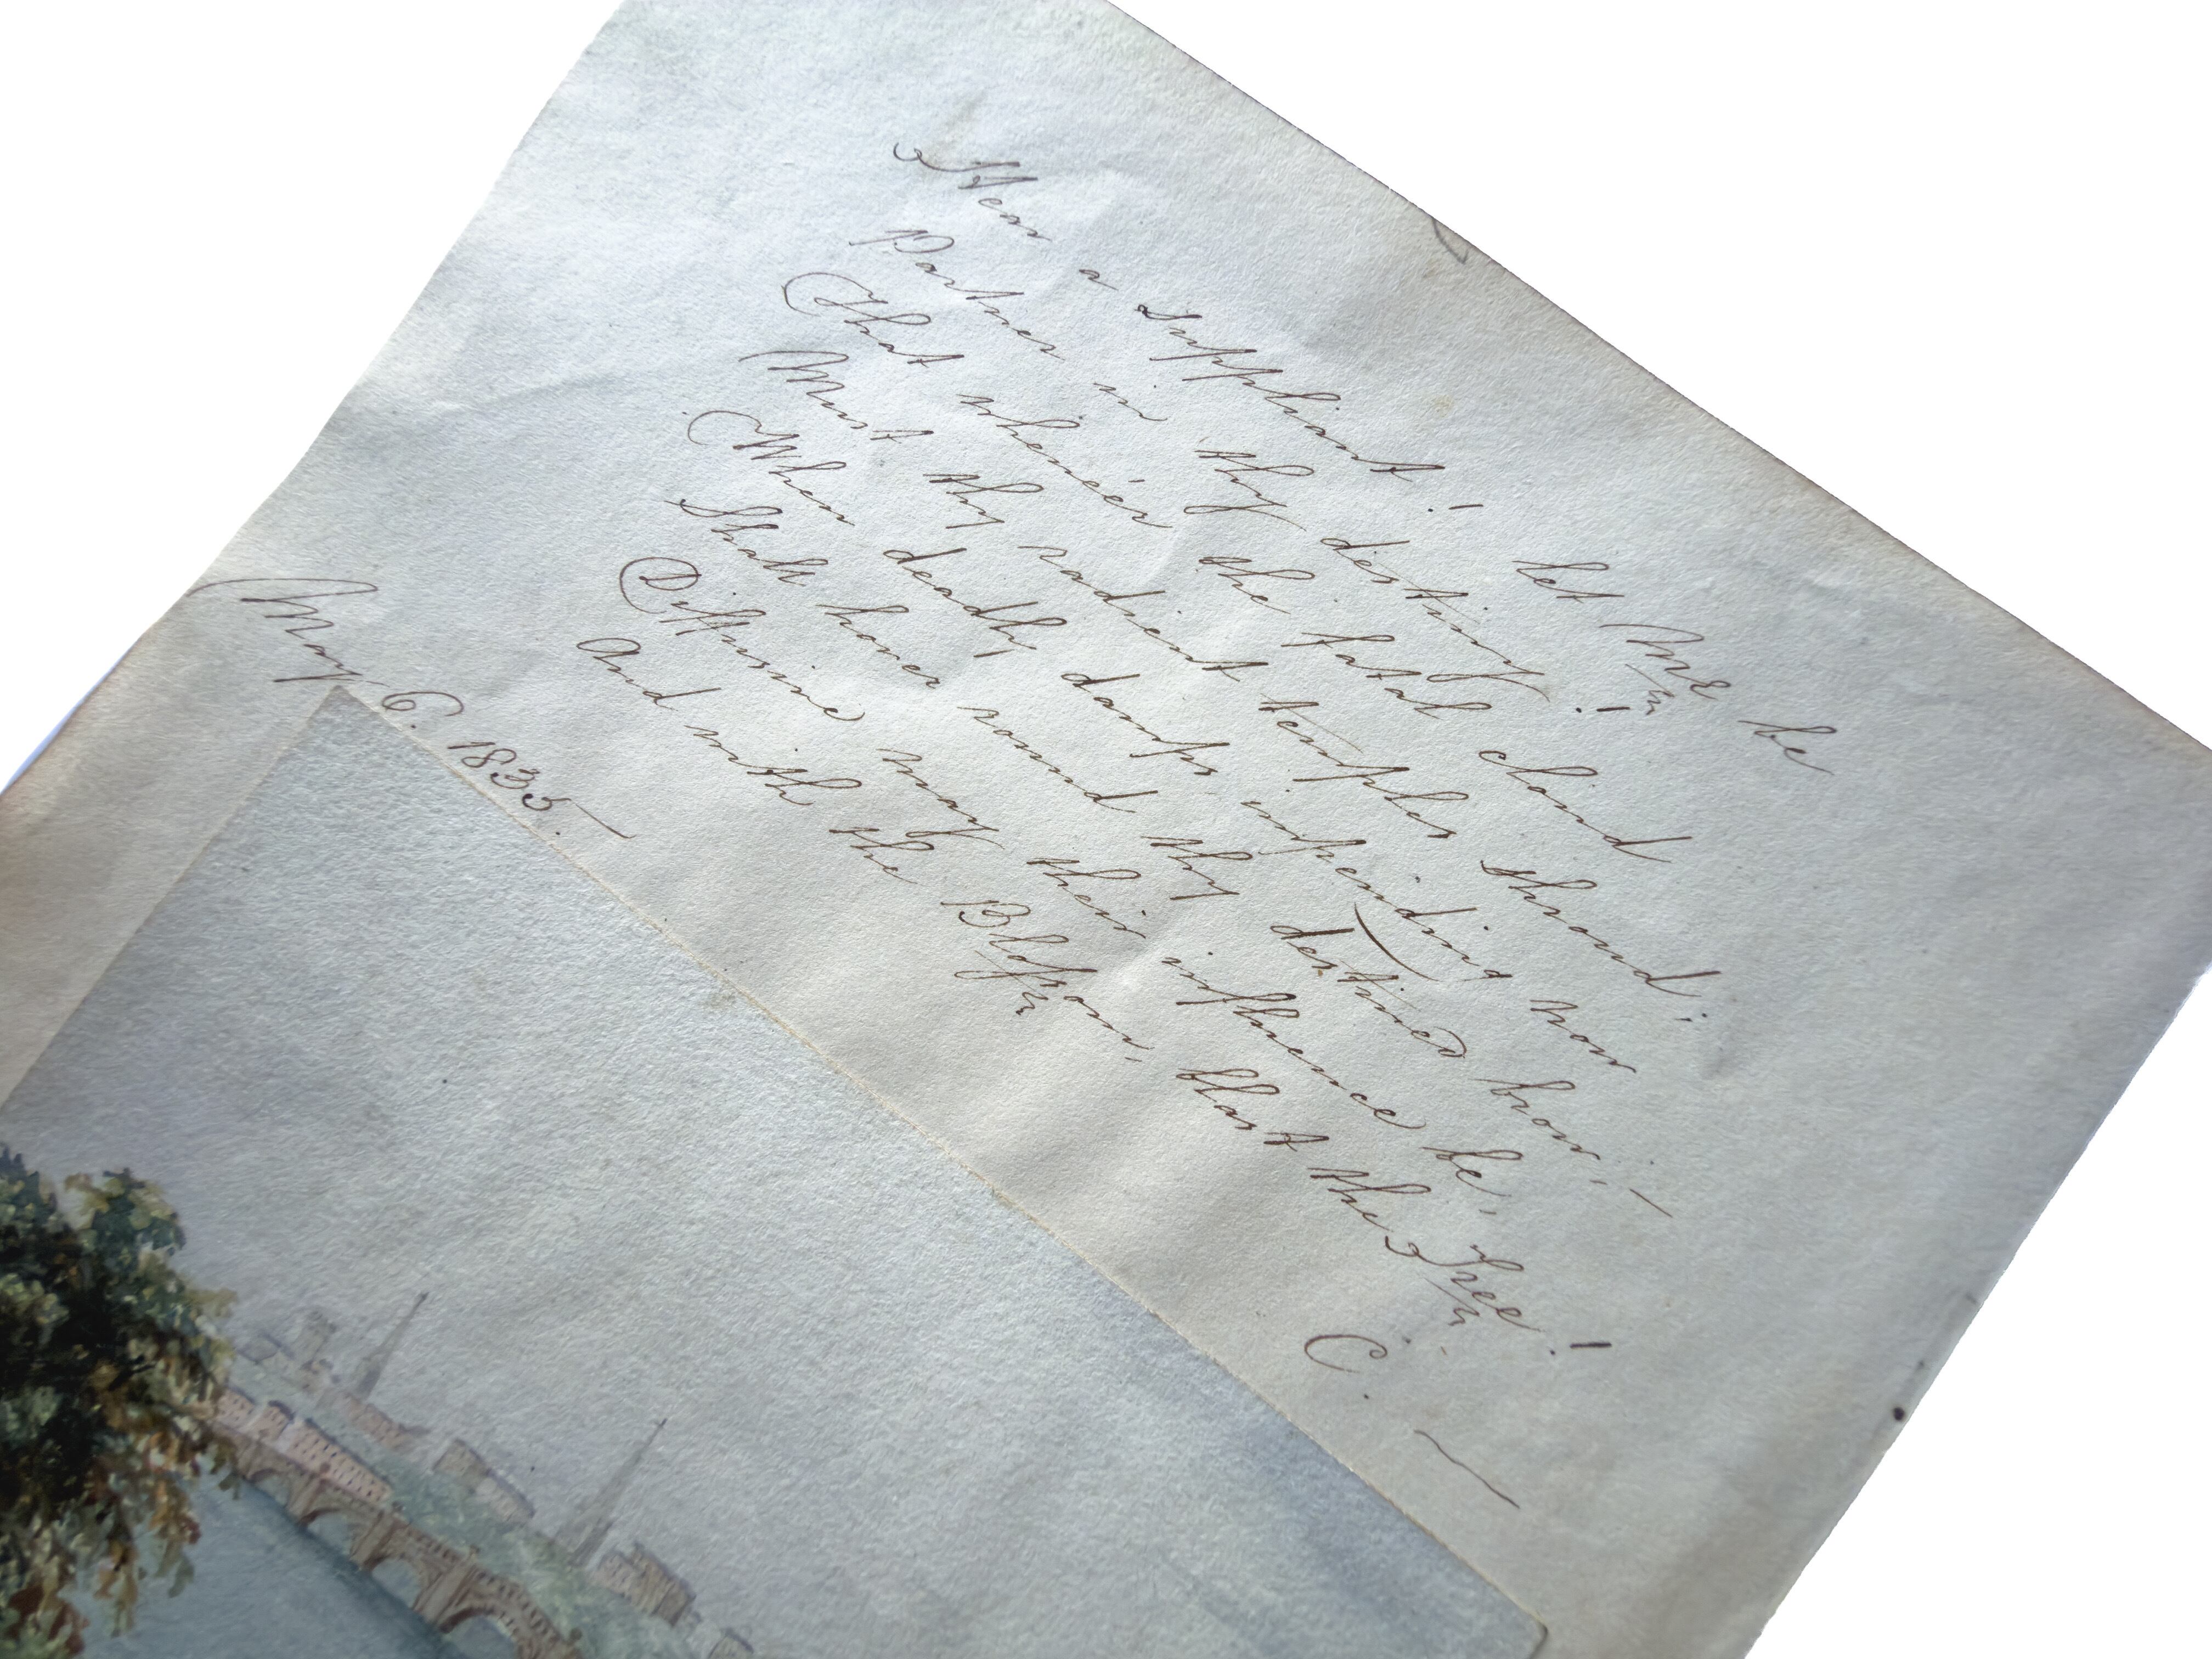 Hear a suppliant! let Me be
Partner in thy destiny!
That whene'er the fatal cloud
Must thy radient temples shroud;
When deadly damps impending now
Shall hover round thy destined brow;—
Diffusive may their influence be,
And with the Bloſsom, blast the Tree!
C.—
May 6. 1835.—